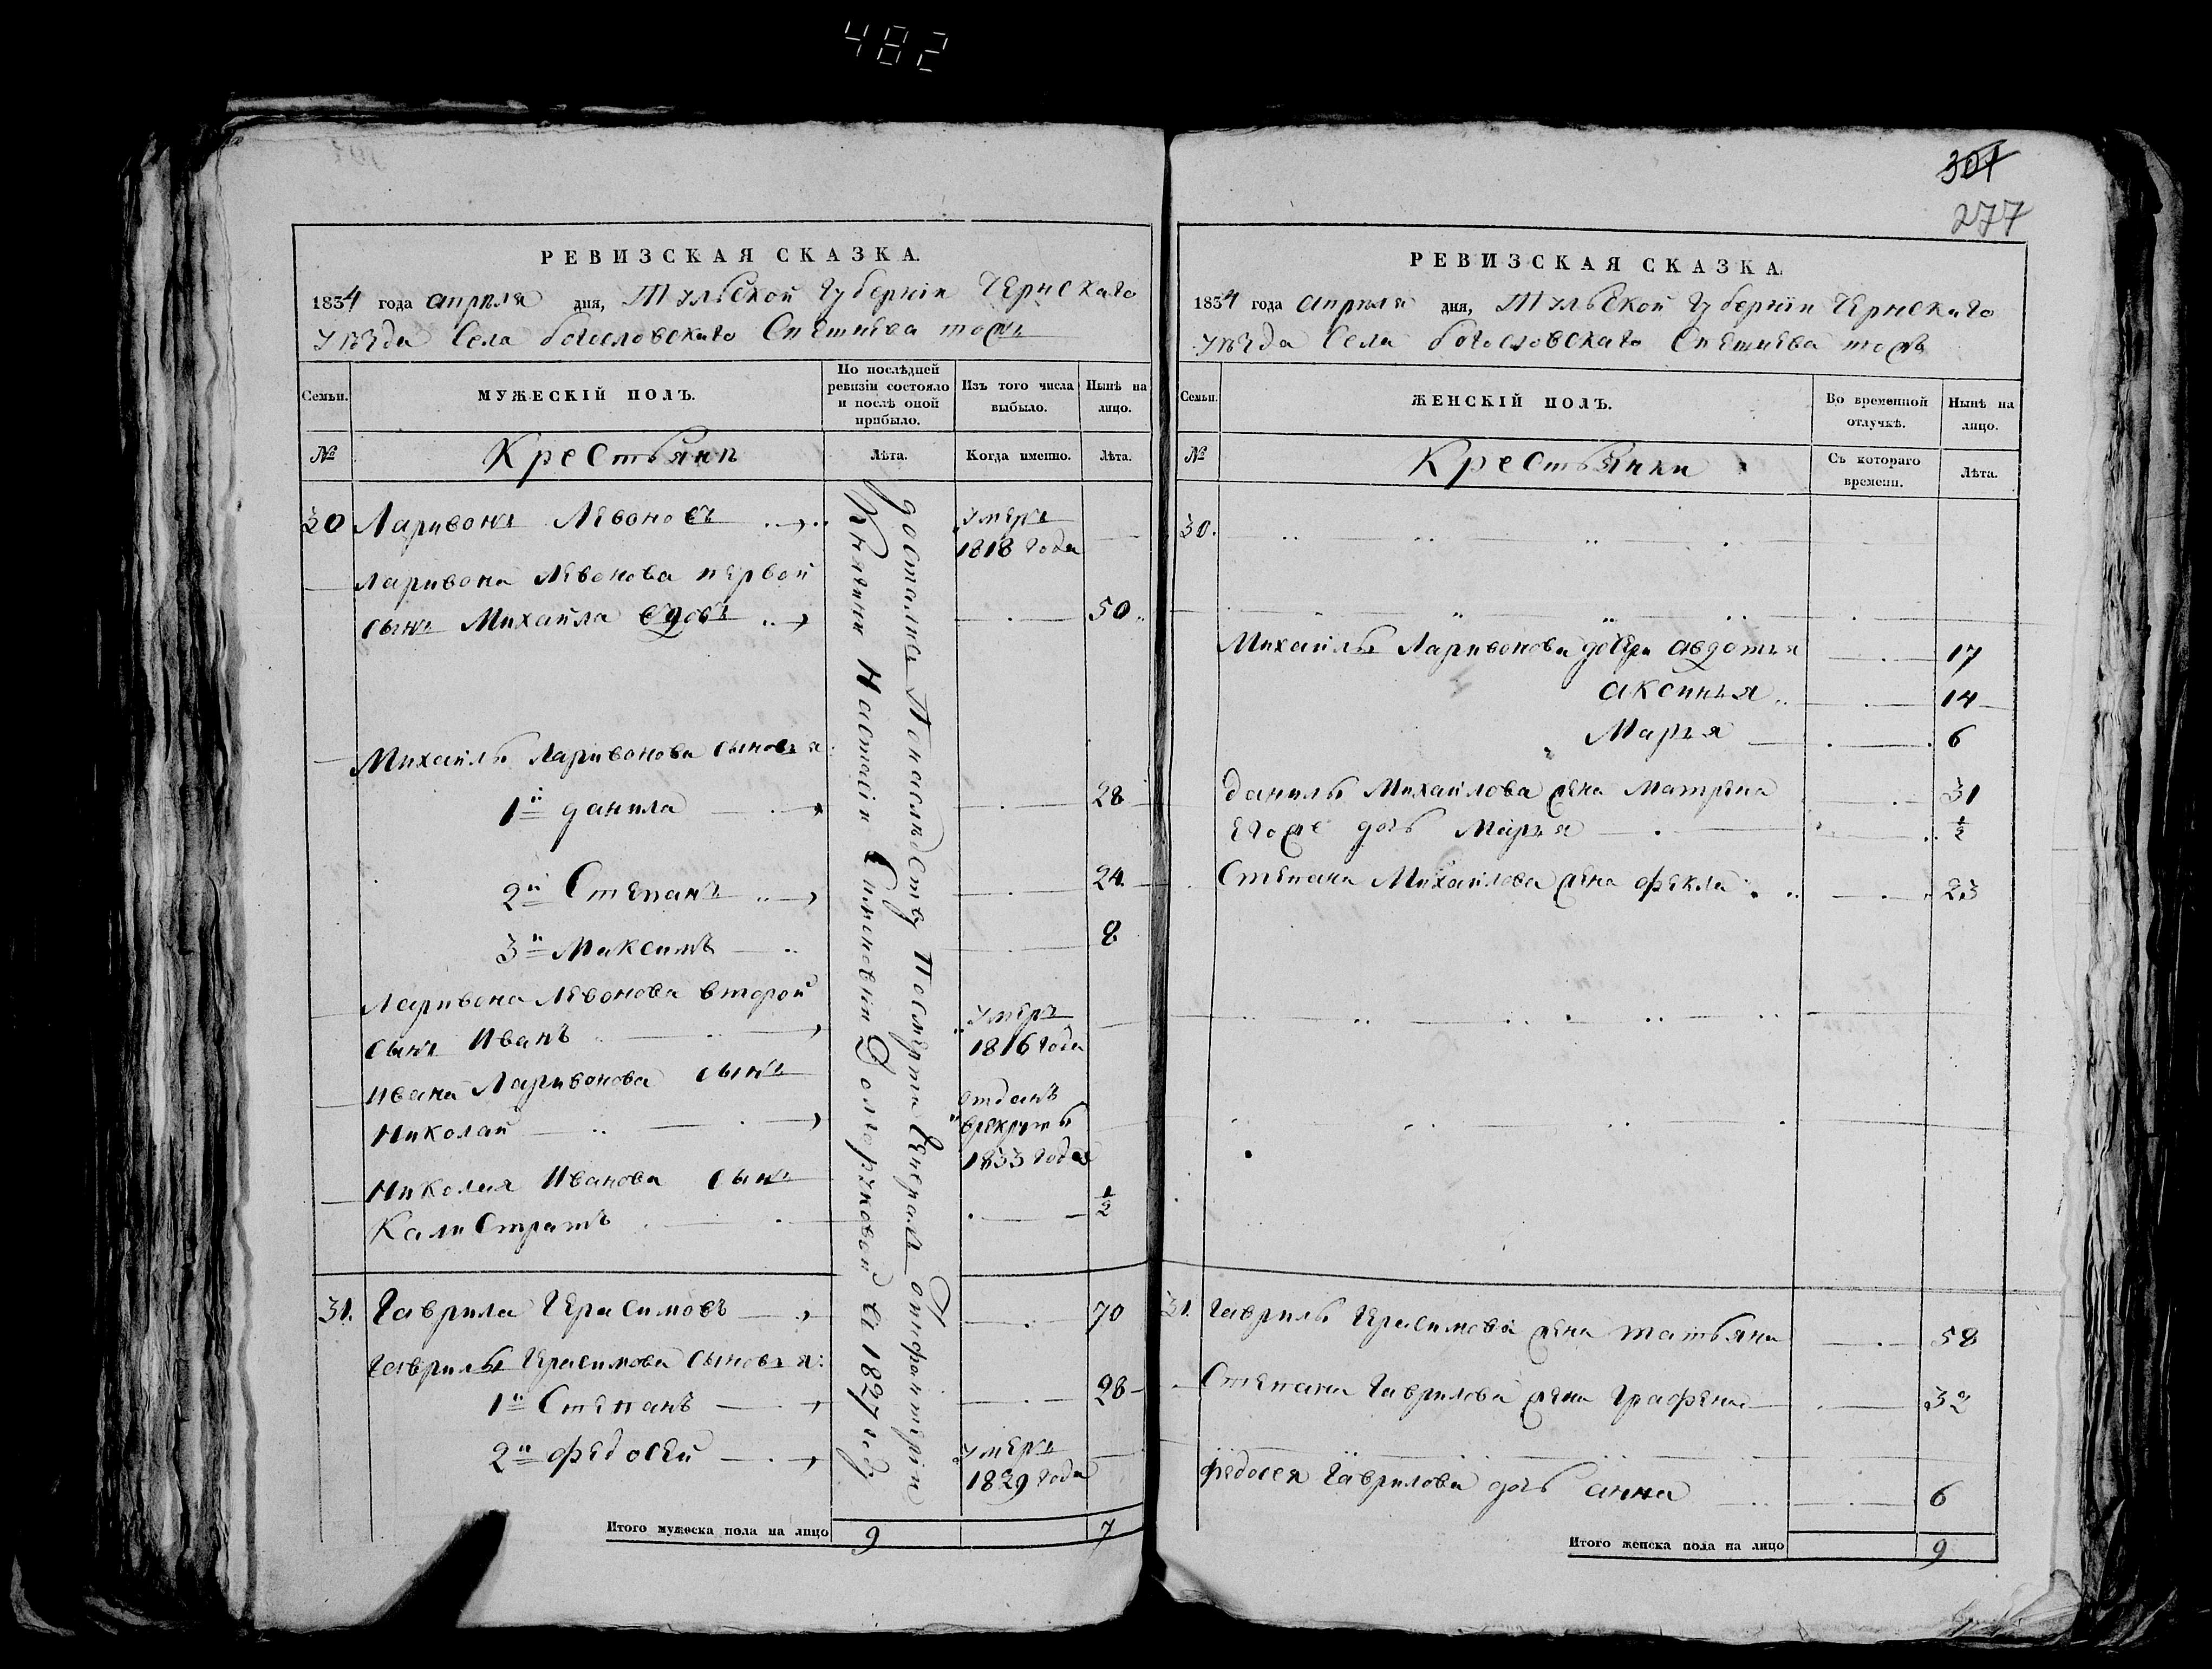 482
РЕВИЗСКАЯ СКАЗКА.
1834 года апреля дня, Тульской Губернiи Чернскаго
уѣзда Села богословскаго Спешнева тожъ
Семьи.
МУЖЕСКIЙ ПОЛЪ.
По послѣдней ревизiи состояло и послѣ оной прибыло.
Изъ того числа выбыло.
Нынѣ на лицо.
№
Крестьяни
Лѣта.
Когда именно.
Лѣта.
30 Ларивонъ Левоновъ умеръ 1818 года
Ларивона Левонова первой
сынъ Михайла вдовъ 50
Михайлы Ларивонова сыновья:
1й данила 28
2й Степанъ 24
3й Максимъ 8
Ларивона Левонова второй
сынъ Иванъ умеръ 1816 года
Ивана Ларивонова сынъ
Николай отданъ врекруты 1833 года
Николая Иванова сынъ
Калистратъ 1/2
31. Гаврила Герасимовъ 70
Гаврилы Герасимова сыновья:
1й Степанъ 28
2й Федосей умеръ 1829 года
достались Понаслѣдству Посмерти Генерала отинфантерiи
Княгини Настасiи Симоновни Долгоруковой въ 1827 году
Итого мужеска пола на лицо 9 7
301
277
РЕВИЗСКАЯ СКАЗКА.
1834 года апреля дня, Тульской Губернiи Чернскаго
уѣзда Села богословскаго Спешнева тожъ
Семьи.
ЖЕНСКIЙ ПОЛЪ.
Во временной отлучкѣ.
Нынѣ на лицо.
№
Крестьянки
Съ котораго времени.
Лѣта.
30.
Михайлы Ларивонова дочери авдотья 17
аксинья 14
Марья 6
данилы Михайлова жена Матрена 31
егоже дочь Марья 1/2
Степана Михайлова жена фекла 23
31. Гаврилы Герасимова жена татьяна 58
Степана Гаврилова жена Графена 32
федосея Гаврилова дочь анна 6
Итого женска пола на лицо 9